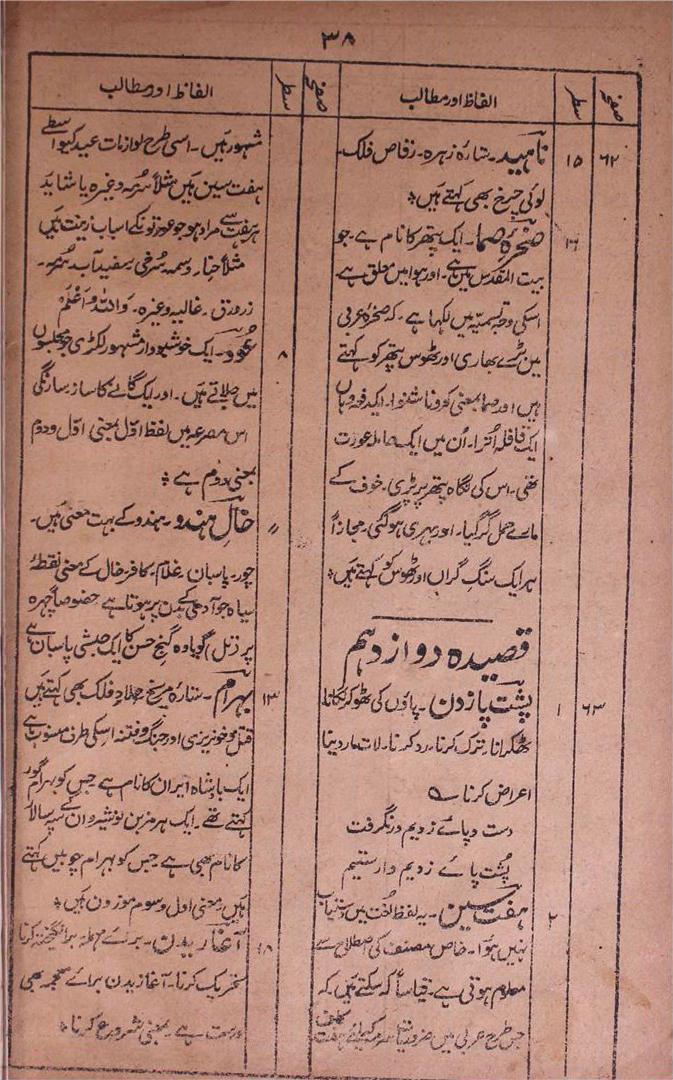 ۳۸
صفحہ سطر الفاظ اور مطالب
۶۲ ۱۵ ناہید۔ ستارہ زہرہ۔ رقاص فلک۔
لولی چرخ بھی کہتے ہیں ؞
۱۶ صخرۂ صما۔ ایک پتھر کا نام ہے۔ جو
بیت المقدس میں ہے۔ اور ہوا میں معلق ہے
اسکی وجہ تسمیہ میں لکھا ہے۔ کہ صخرہ عربی
میں بڑے بھاری اور ٹھوس پتھر کو کہتے
ہیں اور صما بمعنی کر و ناشنوا۔ ایک دفعہ وہاں
ایک قافلہ اُترا۔ اُن میں ایک حاملہ عورت
تھی۔ اس کی نگاہ پتھر پر پڑی۔ خوف کے
مارے حمل گر گیا۔ اور بہری ہو گئی۔ مجازاً
ہر ایک سنگ گراں اور ٹھوس کو کہتے ہیں ؞
قصیدہ دوازدہم
۶۳ ۱ پشت پا زدن۔ پاؤں کی ٹھوکر لگانا
ٹھکرانا۔ ترک کرنا۔ رد کرنا۔ لات مار دینا
اعراض کرنا ؎
دست و پائے زدیم و درنگرفت
پُشت پائے زدیم و وارستیم
۲ ہفت سین۔ یہ لفظ لُغت میں دستیاب
نہیں ہوا۔ خاص مصنف کی اصطلاح سے
معلوم ہوتی ہے۔ قیاساً کہ سکتے ہیں کہ
جس طرح عربی میں ضروریات کیلئے ہفت
صفحہ سطر الفاظ اور مطالب
شہور ہیں۔ اسی طرح لوازمات عید کیواسطے
ہفت سین ہیں مثلاً سُرمہ وغیرہ یا شاید
ہفت سے مراد ہو جو عورتونکے اسباب زینت ہیں
مثلاً حنا۔ وسمہ سُرخی سفید آب سُرمہ۔
زرورق۔ غالیہ وغیرہ۔ وَاللّٰہُ اَعْلَمُ
۸ عُود۔ ایک خوشبودار مشہور لکڑی جو مجلسوں
میں جلاتے ہیں۔ اور ایک گانے کا ساز سارنگی
اس مصرعہ میں لفظ اوّل بمعنی اوّل و دوم
بمعنی دوم ہے ؞
〃 خالِ ہندو۔ ہندو کے بہت معنی ہیں۔
چور۔ پاسبان۔ غلام۔ کافر۔ خال کے معنی نقطۂ
سیاہ جو آدمی کے بدن پر ہوتا ہے خصوصاً چہرہ
پر (تل) گویا وہ گنج حسن کا ایک حبشی پاسبان ہے
۱۳ بہرام۔ ستارہ مریخ جلاد فلک بھی کہتے ہیں
قتل و خونریزی اور جنگ و فتنہ اسکی طرف منسوب ہے
ایک بادشاہ ایران کا نام ہے جس کو بہرام گور
کہتے تھے۔ ایک ہرمز بن نوشیرواں کے سپہ سالار
کا نام بھی ہے جس کو بہرام چوبیں کہتے
ہیں۔ معنی اول و سوم موزون ہیں ؞
۱۸ آغاریدن۔ برائے مہملہ برانگیختہ کرنا
تحریک کرنا۔ آغازیدن برائے معجمہ بھی
درست ہے بمعنی شروع کرنا ؞